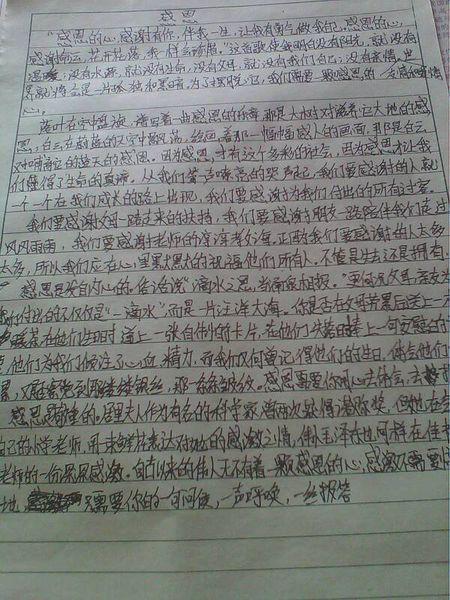 感恩
"感恩的心,感谢有你,伴我一生,让我有勇气做我自己。感恩的心,
感谢命运,花开花落,我一样会珍惜"。这首歌使我明白没有阳光,就没有
温暖;没有水源,就没有生命,没有父母,就没有我们自己;没有亲情,世
界就将会是一片孤独和黑暗。为了摆脱它,我们需要一颗感恩的
心。
落叶在空中盘旋,谱写着一曲感恩的乐章,那是大树对滋养它大地的感
恩,白云在蔚蓝的天空中飘荡,绘画着那一幅幅感人的画面,那是白云
对哺育它的蓝天的感恩。因为感恩才有这个多彩的社会,因为感恩才让我
们懂得了生命的真谛。从我们
一个一个在我们成长的路上出现,我们要感谢为我们付出的所有
我们要感谢父母一路走来的扶持,我们要感谢朋友一路陪伴我们走过
风风雨雨,我们要感谢老师的谆谆教诲。正因为我们要感谢的人太多
太多,所以我们应在心里默默的祝福他们所有人。不管是失去还是拥有。
感恩是发自内心的。俗话说"滴水之恩,当涌泉相报。"更何况父母,亲友为
你付出的不仅仅是"一滴水",而是一片汪洋大海。你是否在父母劳累后送上一
在他们生日时递上一张自制的卡片,在他们失落时捧上一
他们为我们倾注了心血、精力,而我们又何曾记得他们的生日,体会他们
累,又是否察觉到那缕缕银丝,那一条条皱纹。感恩需要你用心去体会,去
感恩是敬重的。居里夫人作为有名的科学家,曾两次获得诺贝尔奖,但她在
自己的小学老师,用一束鲜花表达对她的感激之情;伟人毛泽东也同样在佳节
老师的一份深深感激。自古以来的伟人无不有着一颗感恩的心,感激不需要
地,只需要你的一句问候,一声呼唤,一丝报答